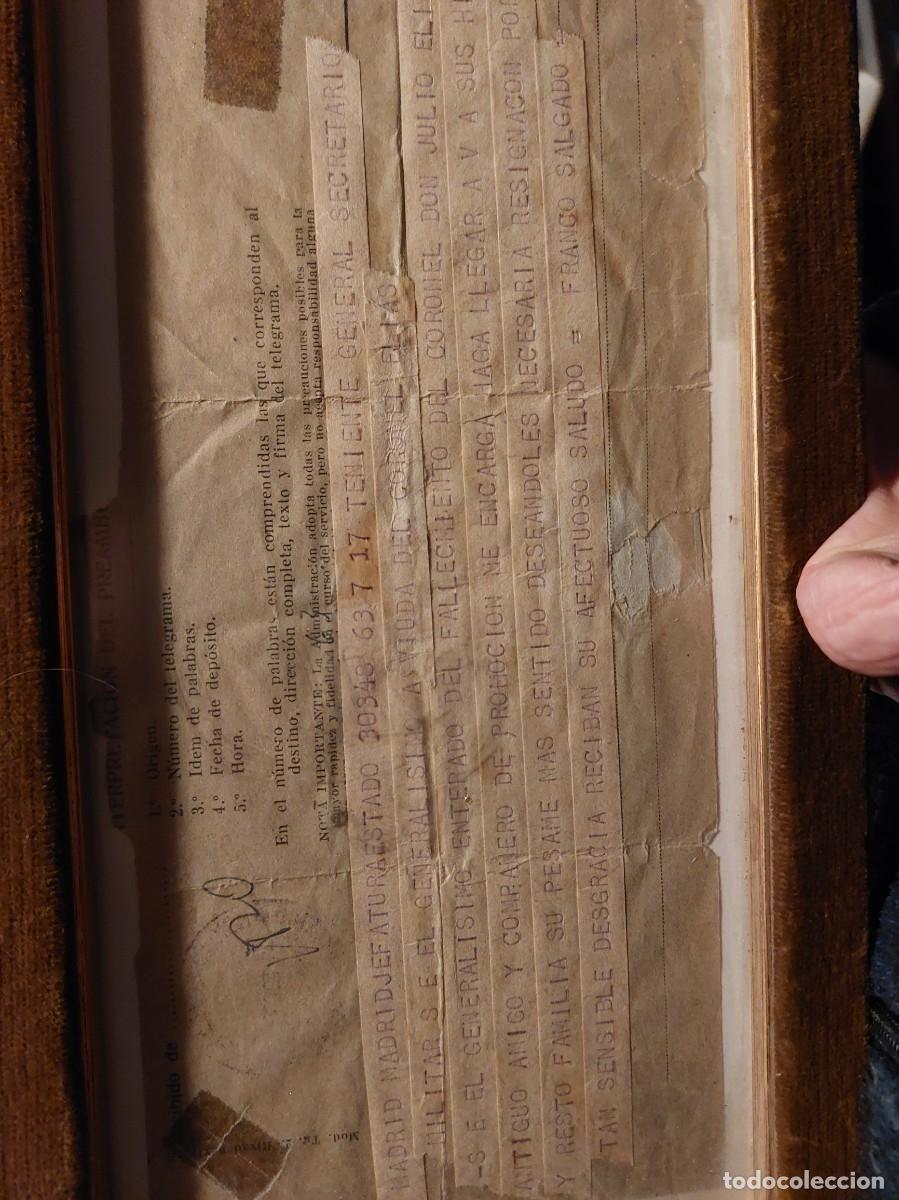 INTERPRETACIÓN DEL PREÁMB
1.º Origen.
2.º Número del telegrama.
3.º Idem de palabras.
4.º Fecha de depósito.
5.º Hora.
En el número de palabras están comprendidas las que corresponden al
destino, dirección completa, texto y firma del telegrama.
NOTA IMPORTANTE: La Administración adopta todas las precauciones posibles para la
mayor rapidez y fidelidad en el curso del servicio, pero no acepta responsabilidad alguna
ibido de
Mod. Tg.
MADRID MADRIDJEFATURAESTADO 30348 63 7 17 TENIENTE GENERAL SECRETARIO
MILITAR S E EL GENERALISIMO A VIUDA DEL CORONEL ELIAS
-S E EL GENERALISIMO ENTERADO DEL FALLECMIENTO DEL CORONEL DON JULIO ELI
ANTIGUO AMIGO Y COMPAÑERO DE PROMOCION ME ENCARGA HAGA LLEGAR A V A SUS H
Y RESTO FAMILIA SU PESAME MAS SENTIDO DESEANDOLES NECESARIA RESIGNACON POR
TAN SENSIBLE DESGRACIA RECIBAN SU AFECTUOSO SALUDO = FRANCO SALGADO +
todocoleccion